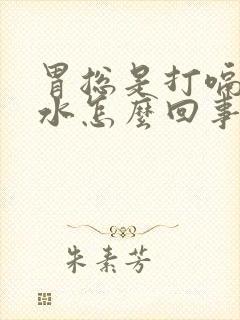 胃总是打嗝
水怎麼回事
朱素芳